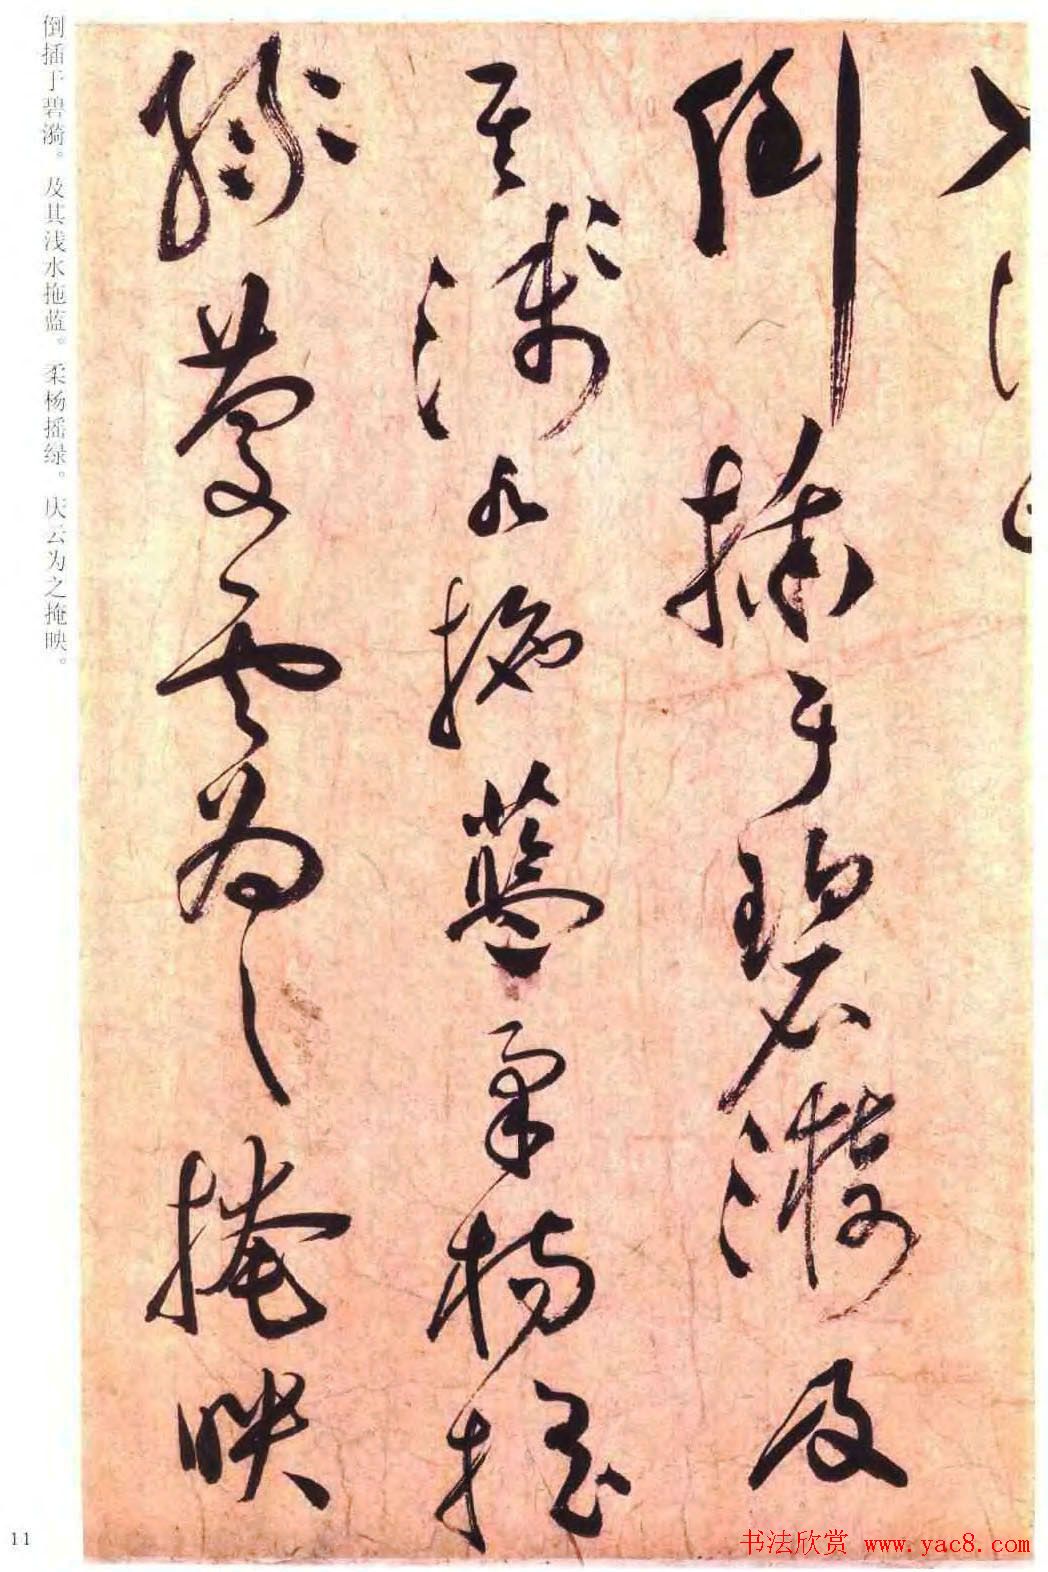 倒插于碧漪及
其浅水拖蓝柔杨摇
绿庆云为之掩映
倒插于碧漪。及其浅水拖蓝。柔杨摇绿。庆云为之掩映。
11
书法欣赏 www.yac8.com